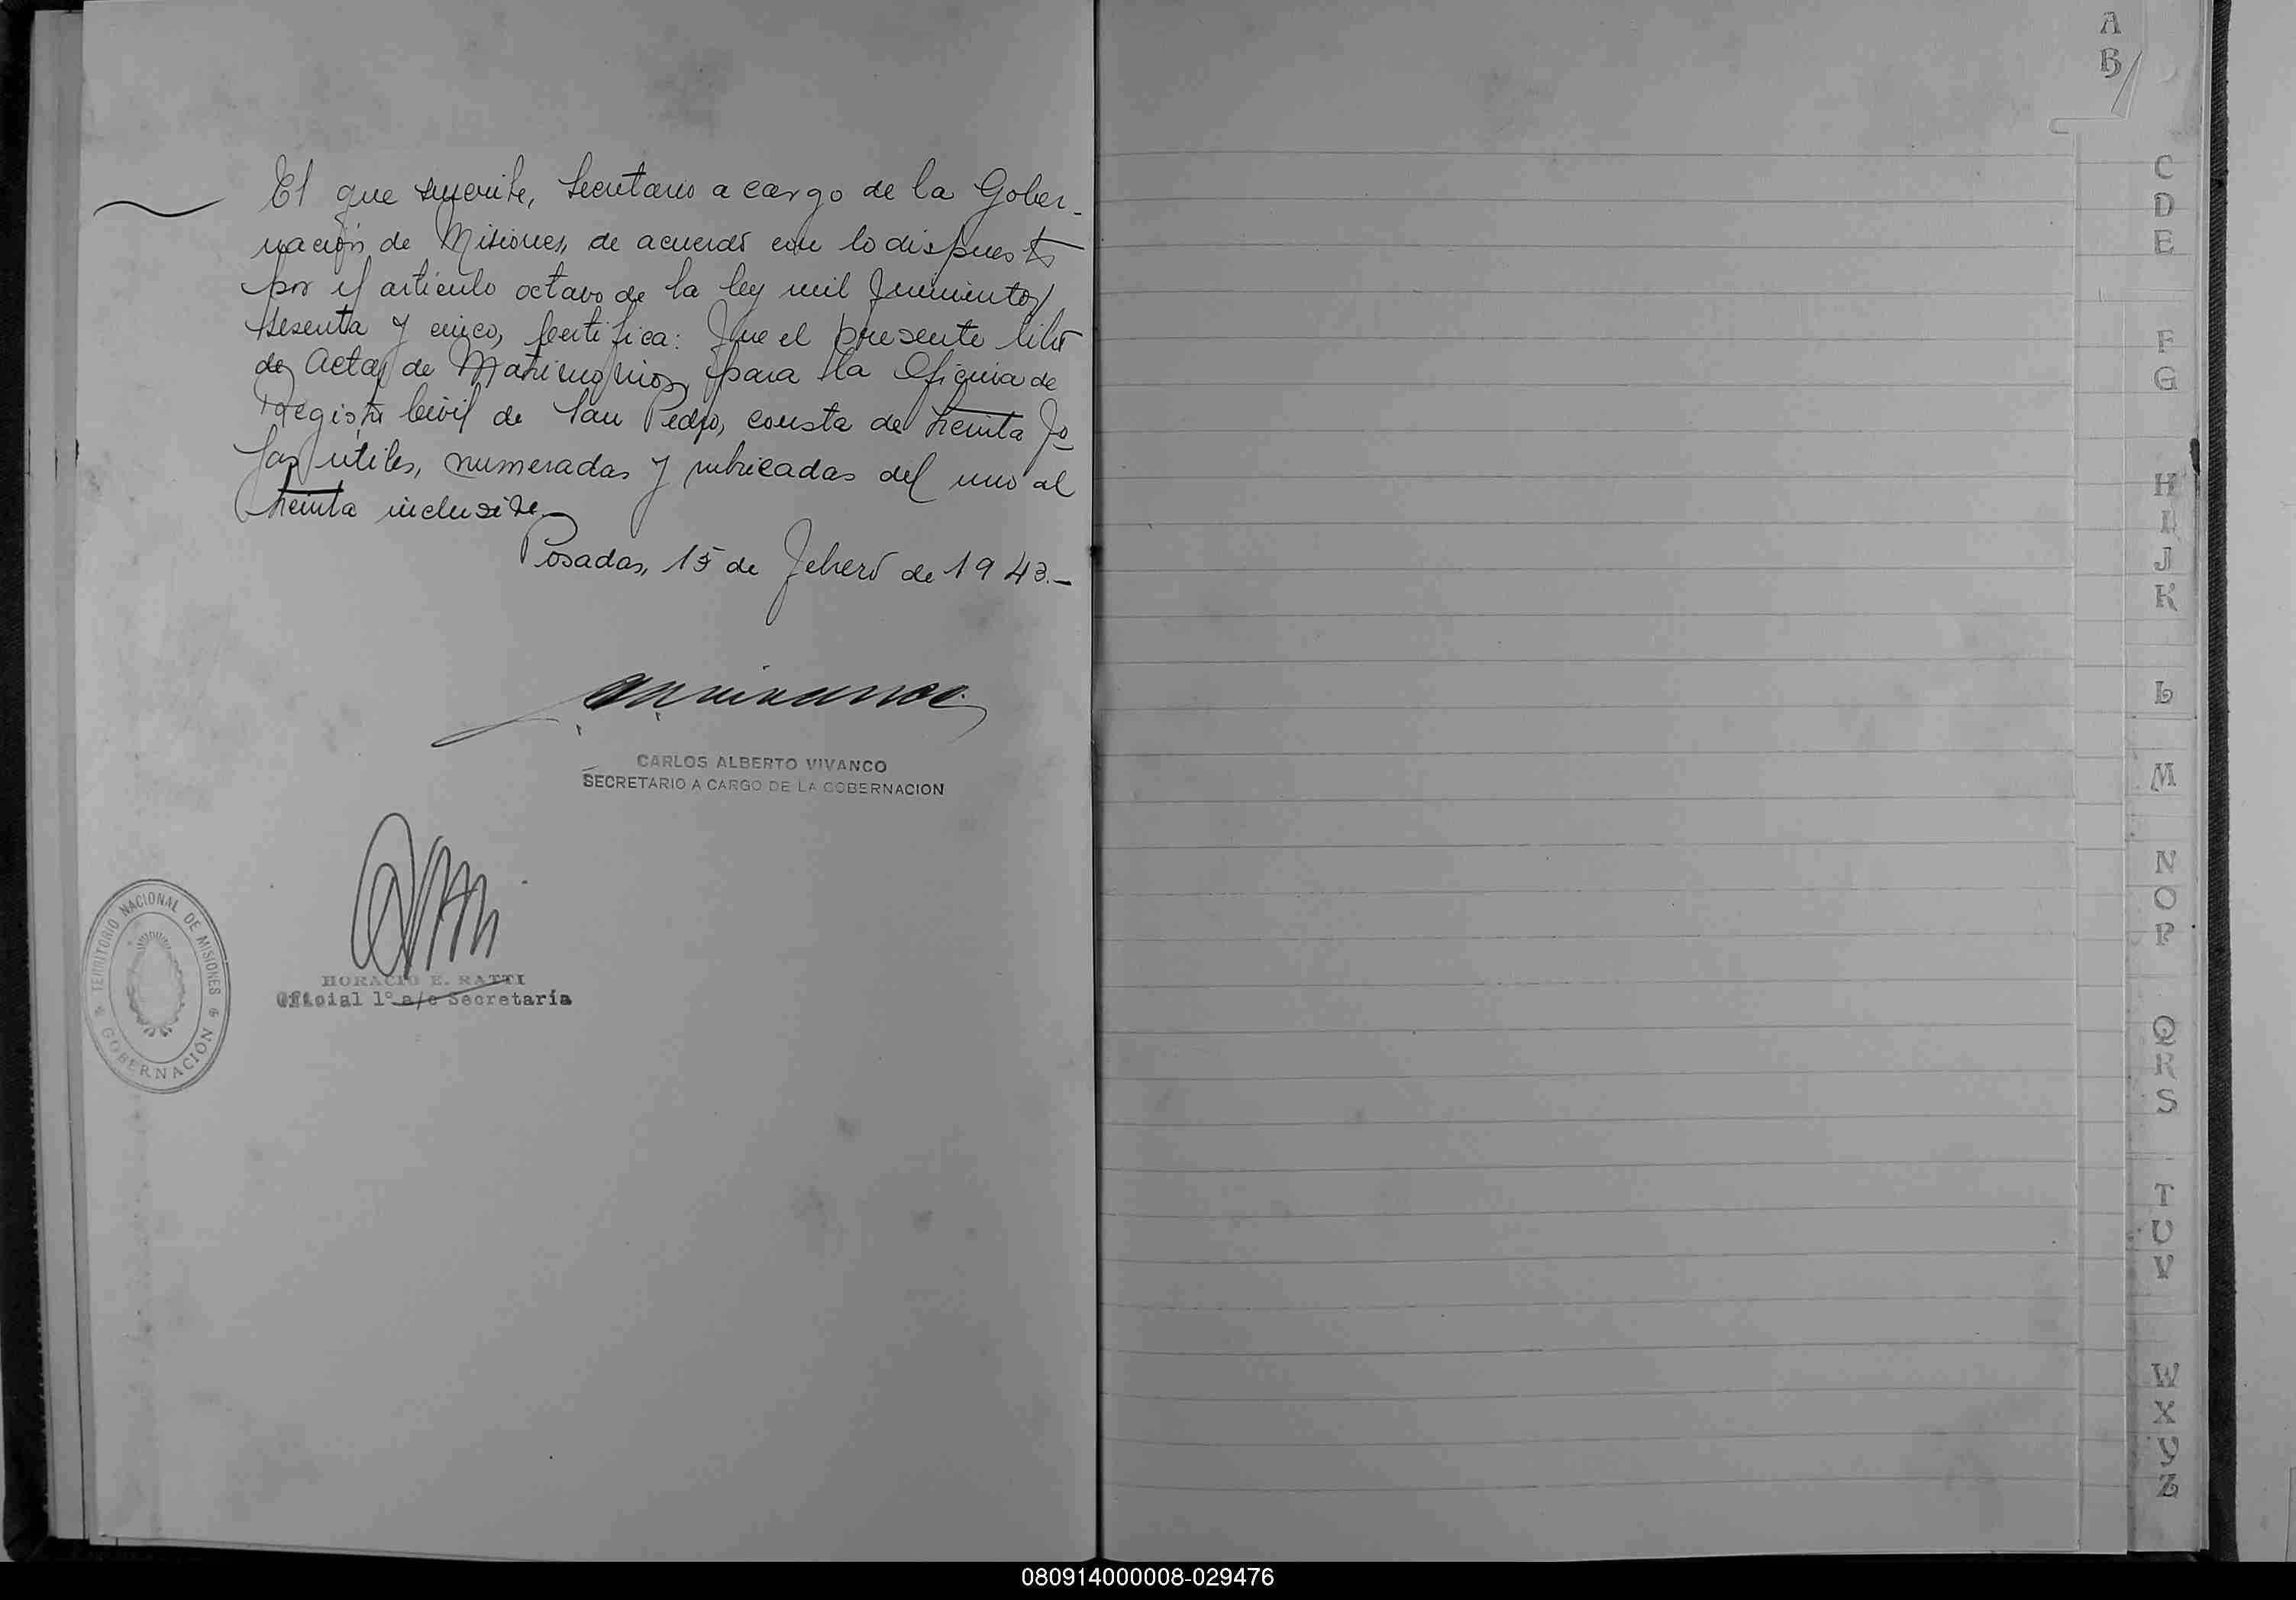 El que suscribe, Secretario a cargo de la Gober-
nación de Misiones, de acuerdo con lo dispuesto
por el artículo octavo de la ley mil quinientos
sesenta y cinco, Certifica: Que el presente libro
de Actas de Matrimonios, para la Oficina de
Registro Civil de San Pedro, consta de treinta fo-
jas útiles, numeradas y rubricadas del uno al
treinta inclusive.-
Posadas, 15 de Febrero de 1943.-
CARLOS ALBERTO VIVANCO
SECRETARIO A CARGO DE LA GOBERNACION
HORACIO E. RATTI
Oficial 1º a/c Secretaría
TERRITORIO NACIONAL DE MISIONES
GOBERNACIÓN
A
B
C
D
E
F
G
H
I
J
K
L
M
N
O
P
Q
R
S
T
U
V
W
X
Y
Z
080914000008-029476